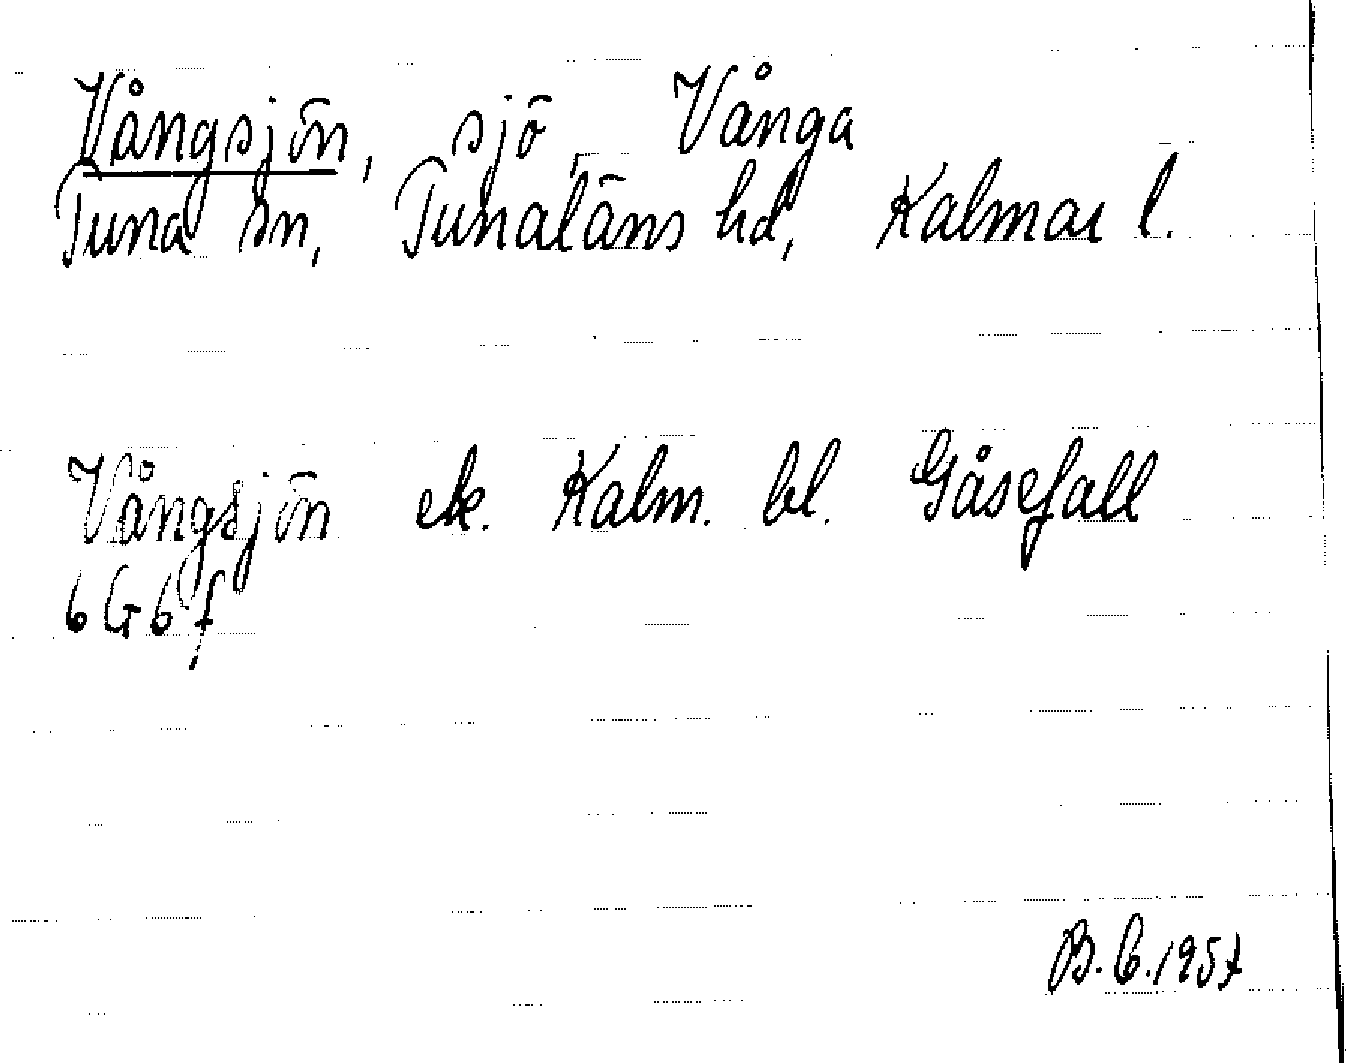 Vångsjön, sjö, Vånga
Tuna sn, Tunaläns hd, Kalmar l.
Vångsjön ek. Kalm. bl. Gåsefall
6G6f
B.C.1957